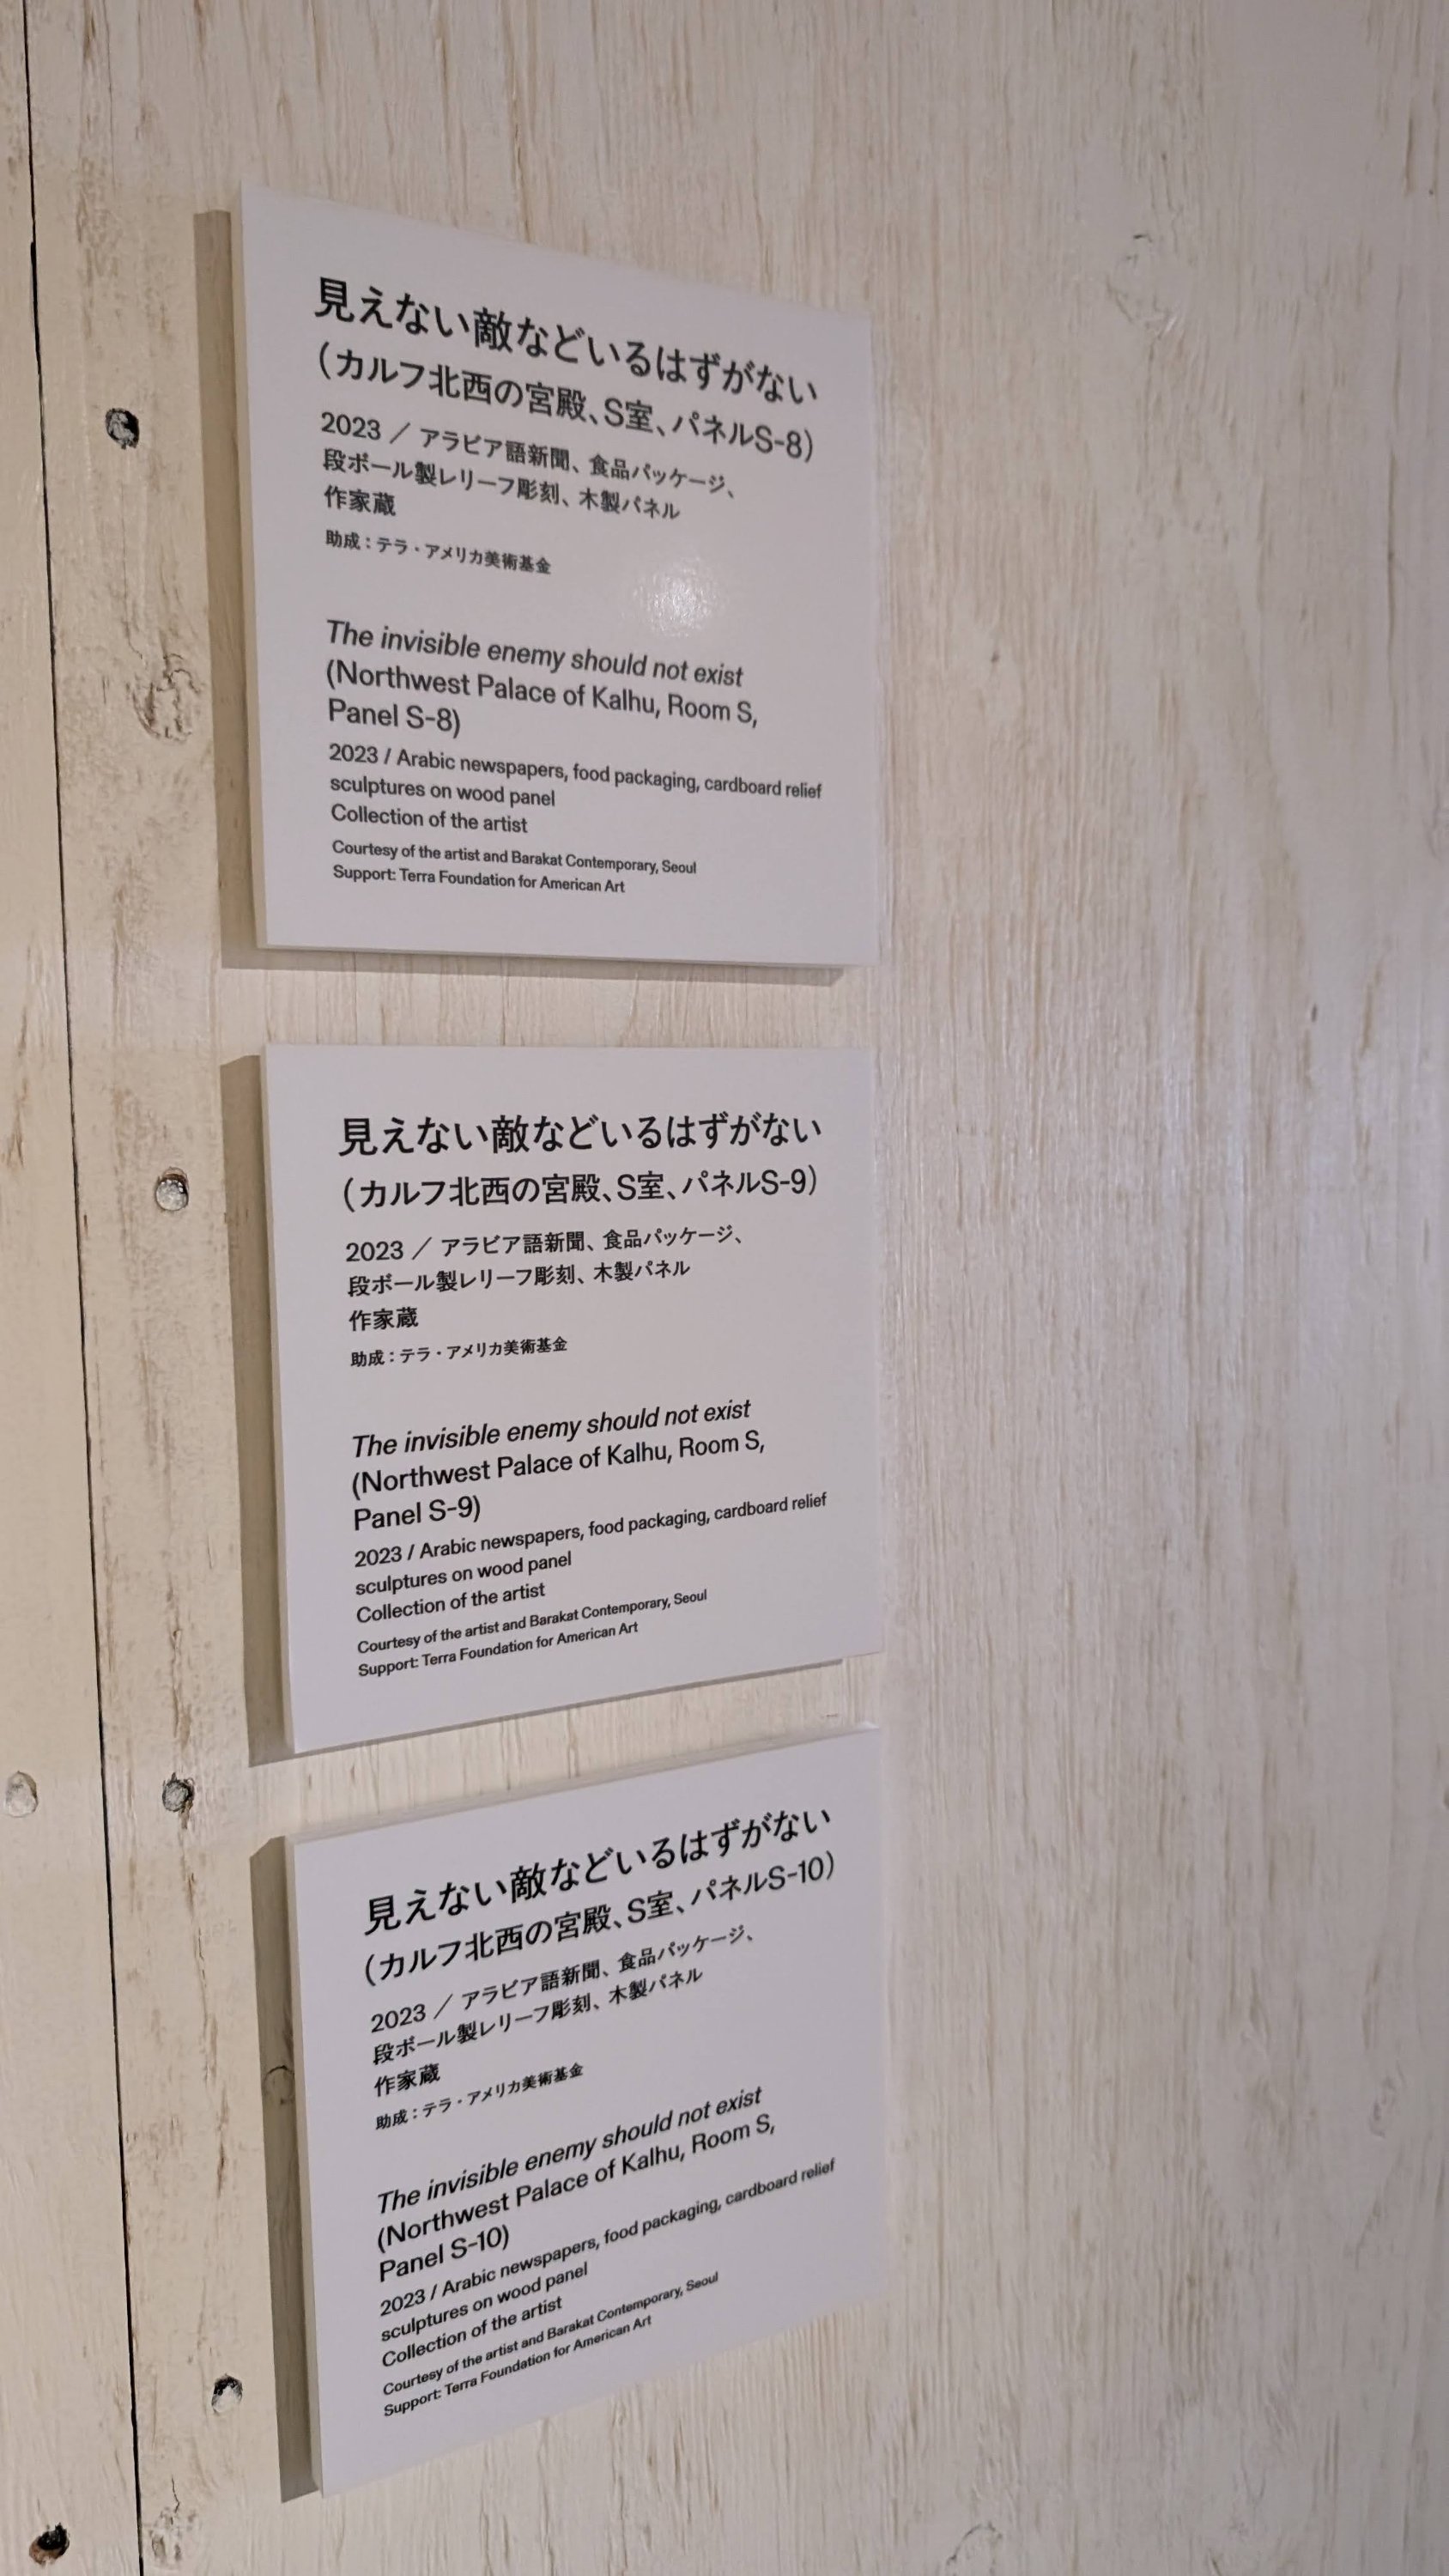 見えない敵などいるはずがない
（カルフ北西の宮殿、S室、パネルS-8）
2023 ／ アラビア語新聞、食品パッケージ、
段ボール製レリーフ彫刻、木製パネル
作家蔵
助成：テラ・アメリカ美術基金
The invisible enemy should not exist
(Northwest Palace of Kalhu, Room S,
Panel S-8)
2023 / Arabic newspapers, food packaging, cardboard relief
sculptures on wood panel
Collection of the artist
Courtesy of the artist and Barakat Contemporary, Seoul
Support: Terra Foundation for American Art
見えない敵などいるはずがない
（カルフ北西の宮殿、S室、パネルS-9）
2023 ／ アラビア語新聞、食品パッケージ、
段ボール製レリーフ彫刻、木製パネル
作家蔵
助成：テラ・アメリカ美術基金
The invisible enemy should not exist
(Northwest Palace of Kalhu, Room S,
Panel S-9)
2023 / Arabic newspapers, food packaging, cardboard relief
sculptures on wood panel
Collection of the artist
Courtesy of the artist and Barakat Contemporary, Seoul
Support: Terra Foundation for American Art
見えない敵などいるはずがない
（カルフ北西の宮殿、S室、パネルS-10）
2023 ／ アラビア語新聞、食品パッケージ、
段ボール製レリーフ彫刻、木製パネル
作家蔵
助成：テラ・アメリカ美術基金
The invisible enemy should not exist
(Northwest Palace of Kalhu, Room S,
Panel S-10)
2023 / Arabic newspapers, food packaging, cardboard relief
sculptures on wood panel
Collection of the artist
Courtesy of the artist and Barakat Contemporary, Seoul
Support: Terra Foundation for American Art